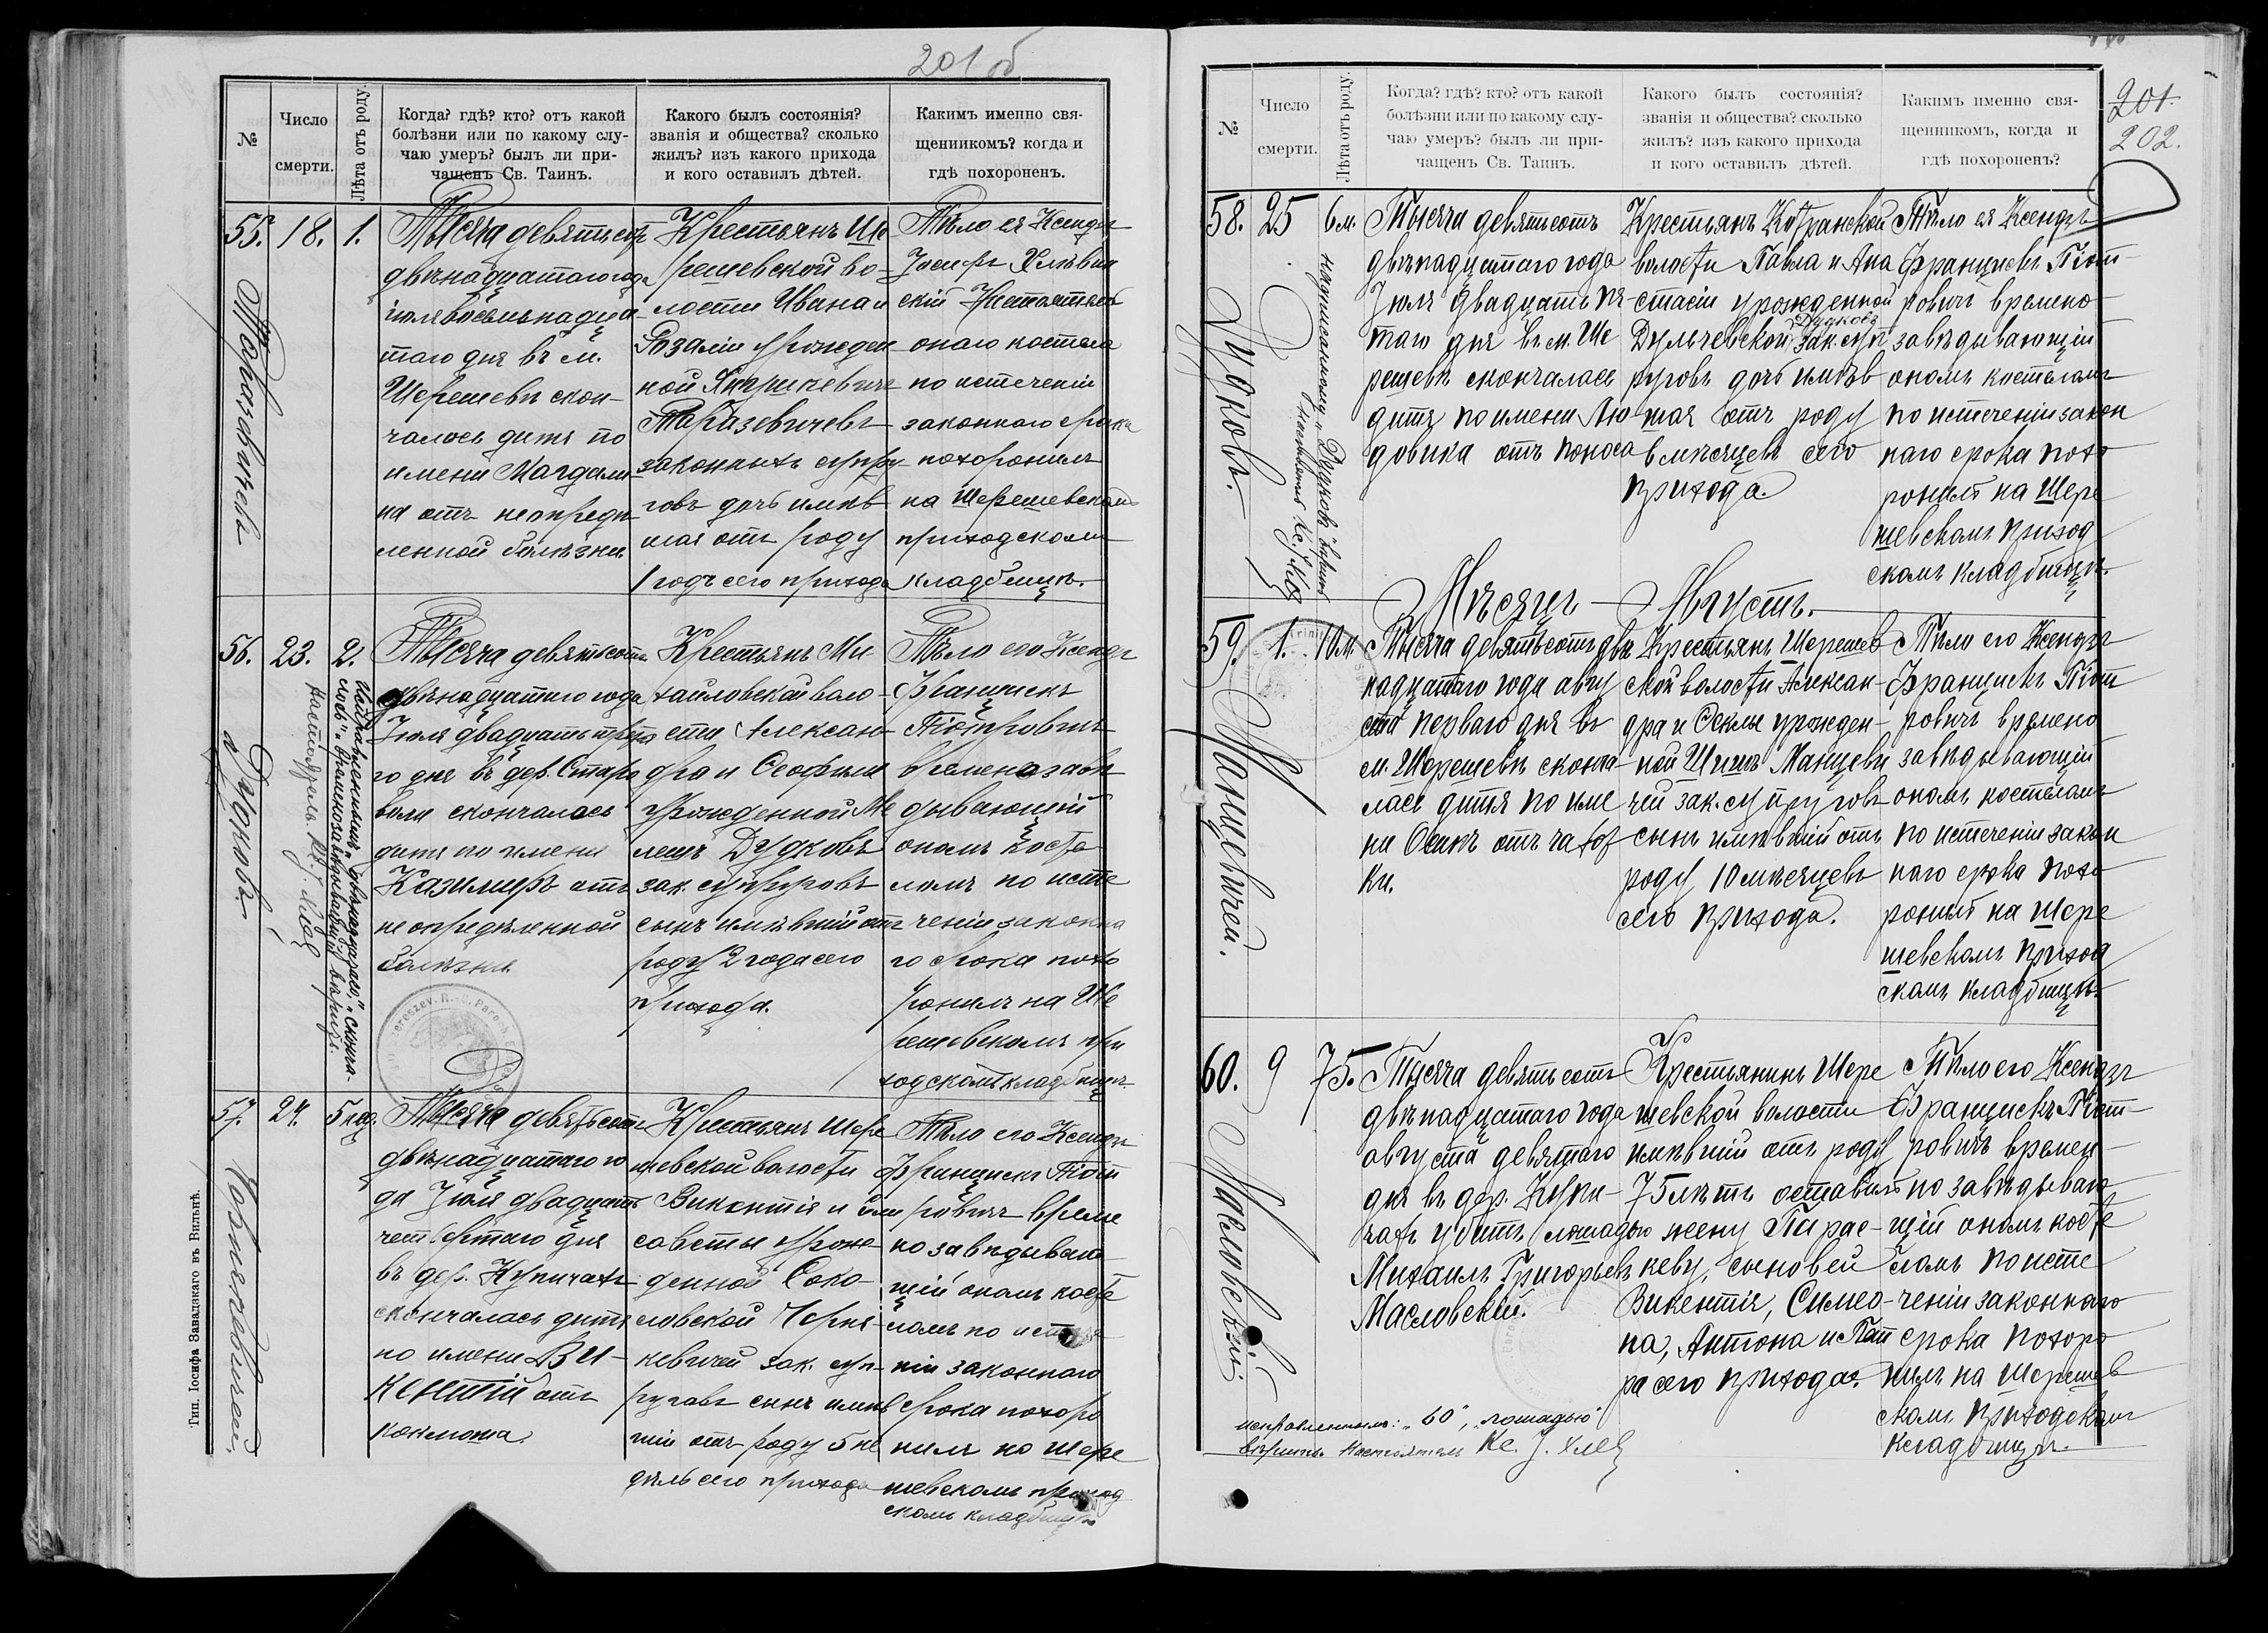 201 об
№
Число
смерти.
Лѣта отъ роду.
Когда? гдѣ? кто? отъ какой
болѣзни или по какому слу-
чаю умеръ? былъ ли при-
чащенъ Св. Таинъ.
Какого былъ состоянія?
званія и общества? сколько
жилъ? изъ какого прихода
и кого оставилъ дѣтей.
Какимъ именно свя-
щенникомъ? когда и
гдѣ похороненъ.
55. 18. 1.
Тысяча девятьсот
двѣнадцатаго года
іюля восемнадца-
таго дня въ м.
Шерешевѣ скон-
чалось дитя по
имени Магдали-
на отъ неопредѣ-
ленной болѣзни.
Крестьянъ Ше-
решевской во-
лости Ивана и
Розаліи урожден-
ной
Таразевичевъ
законныхъ супру-
говъ дочь имѣв-
шая отъ роду
1 годъ сего прихода
Тѣло ея Ксендзъ
Іосифъ Хлѣвин
скій Настоятель
онаго костела
по истеченіи
законнаго срока
похоронилъ
на Шерешевскомъ
приходскомъ
кладбищѣ.
56. 23. 2.
Дудковъ.
Тысяча девятьсотъ
двѣнадцатаго года
Іюля двадцать третья
го дня въ дер. Старо
воли скончалось
дитя по имени
Казимиръ отъ
неопредѣленной
болѣзни
Крестьянъ Ми
хайловской воло-
сти Алексан-
дра и Теофиліи
урожденной Ме
лешъ Дудковъ
зак. супруговъ
сынъ имѣвшій отъ
роду 2 года сего
прихода.
Тѣло его Ксендзъ
Францискъ
Піотровичъ
временно завѣ
дывающій
онымъ косте
ломъ по исте
ченіи законна
го срока похо
ронилъ на Ше
решевскомъ при
ходскомъ кладбищѣ
57. 24. 5 нед.
Тысяча девятьсотъ
двѣнадцатаго го
да Іюля двадцать
четвертаго дня
въ дер. Купичахъ
скончалось дитя
по имени Ви-
кентій отъ
коклюша.
Крестьянъ Шере
шевской волости
Викентія и Ели
саветы урож-
денной Соко-
ловской Черня-
кевичей зак. суп-
руговъ сынъ имѣв
шій отъ роду 5 не
дѣль сего прихода
Тѣло его Ксендзъ
Францискъ Піот
ровичъ време
но завѣдываю
щій онымъ косте
ломъ по истече
ніи законнаго
срока похоро
нилъ на Шере
шевскомъ приход
скомъ кладбищѣ
Тип. Іосифа Завадзкаго въ Вильнѣ.
201.
202.
№
Число
смерти.
Лѣта отъ роду.
Когда? гдѣ? кто? отъ какой
болѣзни или по какому слу-
чаю умеръ? былъ ли при-
чащенъ Св. Таинъ.
Какого былъ состоянія?
званія и общества? сколько
жилъ? изъ какого прихода
и кого оставилъ дѣтей.
Какимъ именно свя-
щенникомъ, когда и
гдѣ похороненъ?
58. 25 6 м.
Дудковъ.
Тысяча девятьсотъ
двѣнадцатаго года
Іюля двадцать пя-
таго дня въ м. Ше
решевѣ скончалась
дитя по имени Лю
довика отъ поноса
Крестьянъ Кобринской
волости Павла и Ана
стасіи урожденной
Дульчевской Дудковъ зак. суп
руговъ дочь имѣв
шая отъ роду
6 мѣсяцевъ сего
прихода.
Тѣло ея Ксендзъ
Францискъ Піот-
ровичъ времено
завѣдывающій
онымъ костеломъ
по истеченіи закон
наго срока похо
ронилъ на Шере
шевскомъ приход
скомъ кладбищѣ.
Мѣсяцъ Августъ.
59. 1. 10 м.
Манцевичей.
Тысяча девятьсотъ двѣ
надцатаго года авгу
ста перваго дня въ
м. Шерешевѣ сконча-
лась дитя по име
ни Осипъ отъ чахот
ки.
Крестьянъ Шерешев
ской волости Алексан-
дра и Теклы урожден-
ной Шишъ Манцеви
чей зак. супруговъ
сынъ имѣвшій отъ
роду 10 мѣсяцевъ
сего прихода.
Тѣло его Ксендзъ
Францискъ Піот
ровичъ времено
завѣдывающій
онымъ костеломъ
по истеченіи закон
наго срока похо
ронилъ на Шере
шевскомъ приход
скомъ кладбищѣ
60. 9 75.
Масловскій.
Тысяча девятьсотъ
двѣнадцатаго года
августа девятаго
дня въ дер. Купи-
чахъ убитъ лошадью
Михаилъ Григорьевъ
Масловскій.
Крестьянинъ Шере
шевской волости
имѣвшій отъ роду
75 лѣтъ оставилъ
жену Парас-
кеву, сыновей
Викентія, Симео-
на, Антона и Пет
ра сего прихода.
Тѣло его Ксендзъ
Францискъ Піот-
ровичъ времен-
но завѣдываю
щій онымъ косте
ломъ по исте
ченіи законнаго
срока похоро
нилъ на Шерешев
скомъ приходскомъ
кладбищѣ.
исправленному: "60", "лошадью"
вѣрить. Настоятель Кс. І. Хлев